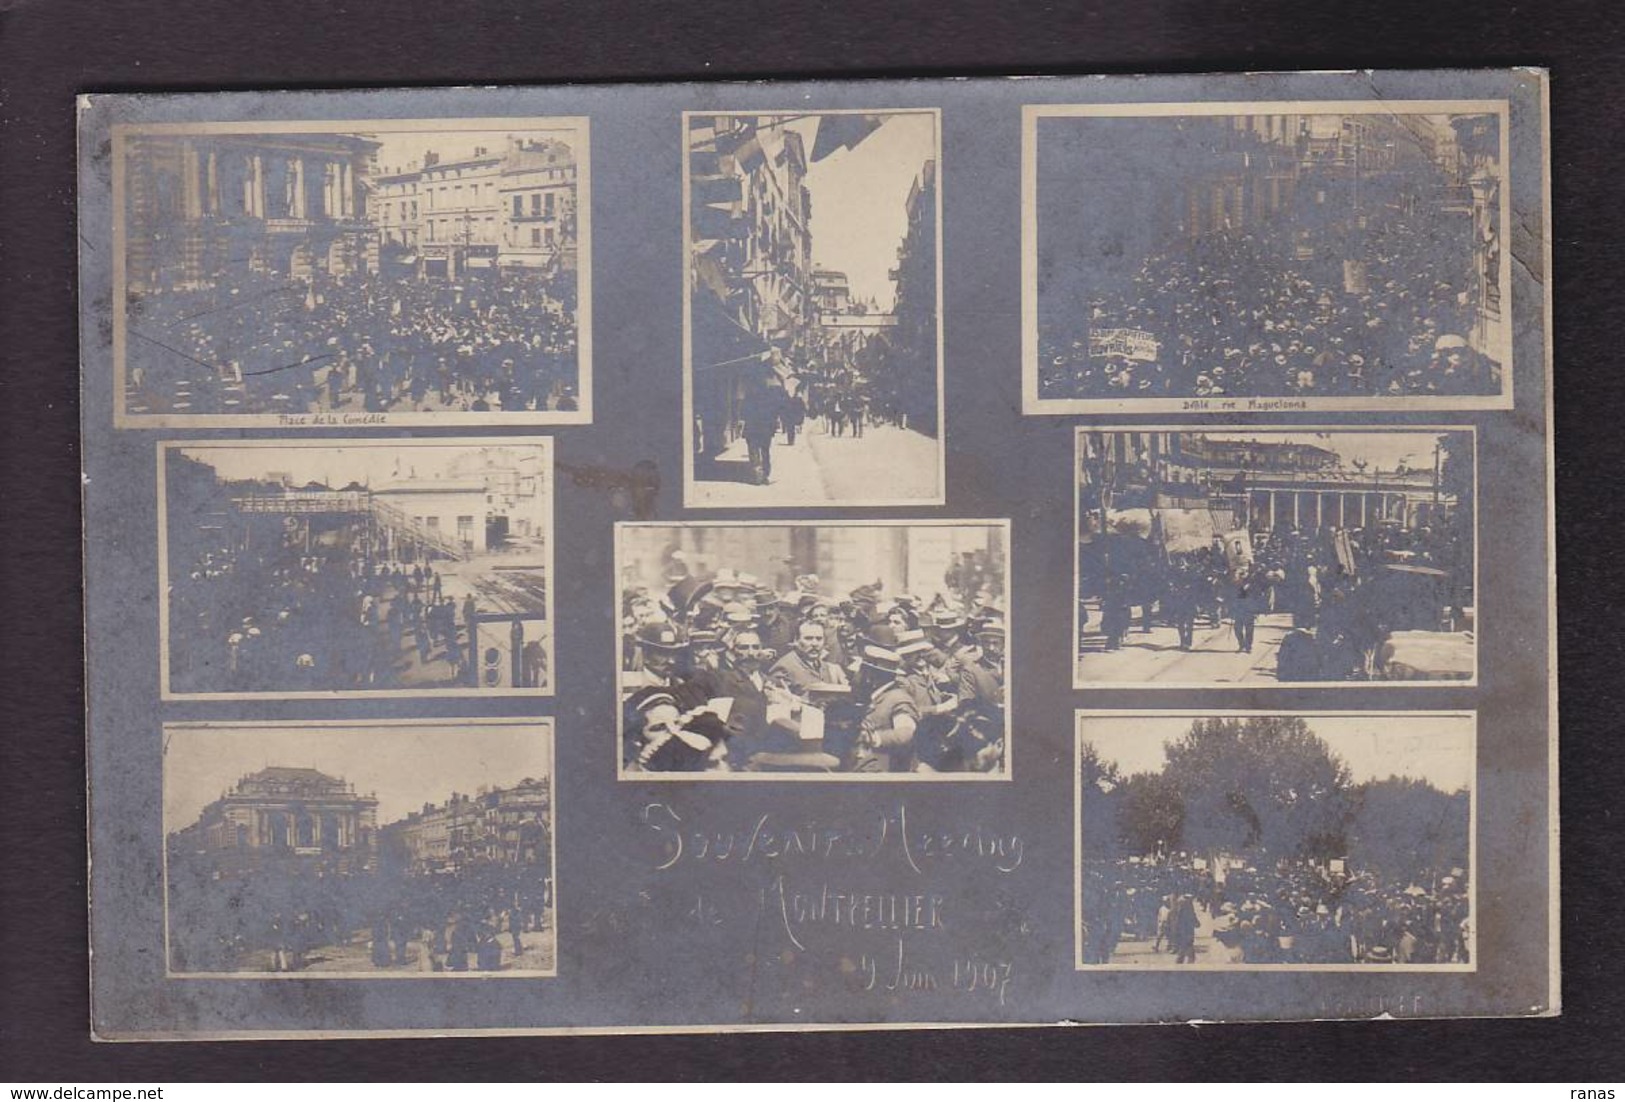 Place de la Comédie
Défilé rue Maguelonne
Souvenirs Meeting
de MONTPELLIER
9 Juin 1907
ranas